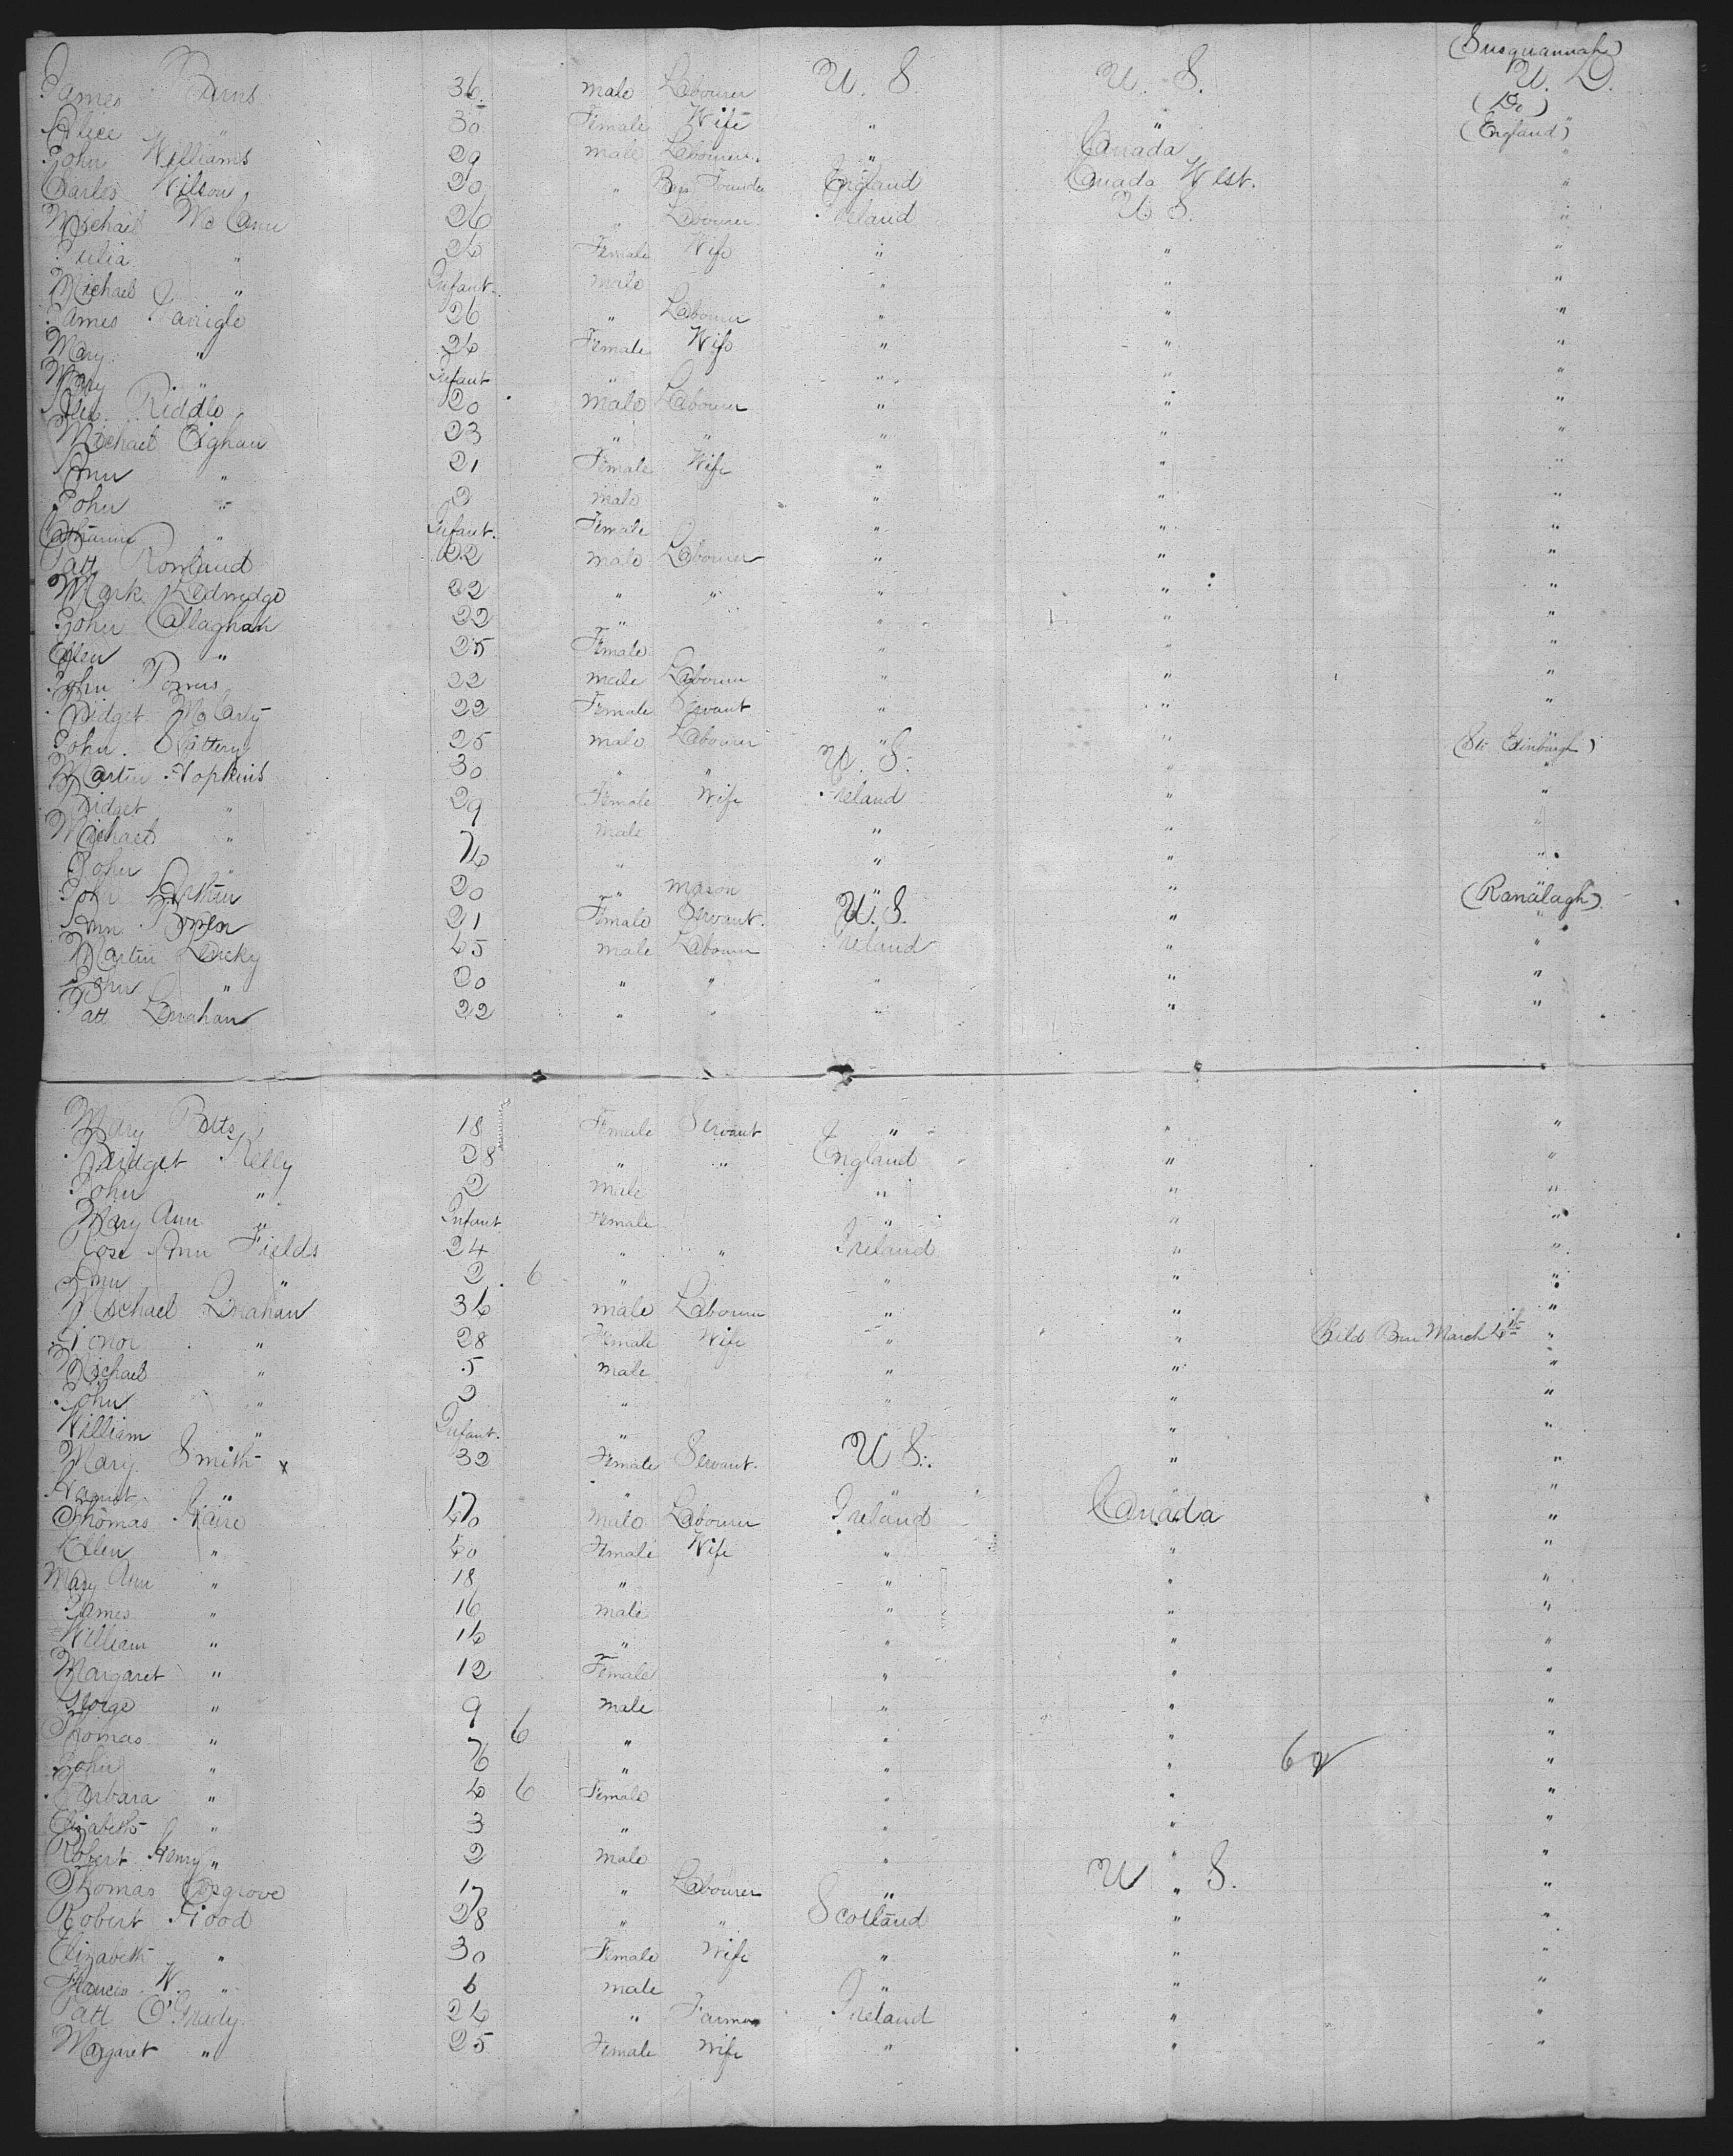 (Susquannah)
James Burns 36 male Labourer U. S. U. S. U. D.
(Do)
Alice " 30 Female Wife " " "
(England)
John Williams 29 male Labourer. " Canada "
Charles Wilson. 20 " England Canada West. "
Michael Mc Cann 26 " Labourer Ireland U. S. "
Julia " 26 Female Wife " " "
Michael J " Infant. male " " "
James 26 " Labourer " " "
Mary " 26 Female Wife " " "
Mary " Infant " " " "
Riddle 20 male Labourer " " "
Michael 23 " " " " "
Ann " 21 Female Wife " " "
John " 2 male " " "
Catharine " Infant. Female " " "
Patt Rowland 22 male Labourer " " "
Mark Ledwedge 22 " " " " "
John Callaghan 22 " " " "
Ellen " 25 Female " " "
John Powers 22 male Labourer " " "
Bridget McCarty 22 Female Servant " " "
John Slattery 25 male Labourer " " (St: Edinburgh)
Martin Hopkins 30 " " U. S. " "
Bridget " 29 Female Wife Ireland " "
Michael " male " " "
John " " " " "
John 20 " mason " " (Ranalagh)
Ann 21 Female Servant. U. S. " "
Martin 45 male Labourer Ireland " "
John " 20 " " " " "
Patt Lenahan 22 " " " " "
Mary Betts 18 Female Servant " " "
Bridget Kelly 28 " " England " "
John " 2 male " " "
Mary Ann " Infant Female " " "
Rose Ann Fields 24 " " Ireland " "
Ann " 2 6 " " " "
Michael Lenahan 36 male Labourer " " "
Honor " 28 Female Wife " " Child Born March 4th "
Michael " 5 male " " "
John " 2 " " " "
William " Infant. " " "
Mary Smith x 32 Female Servant. U S. " "
" " " " "
Thomas 40 male Labourer Ireland Canada "
Ellen " 40 Female Wife " " "
Mary Ann " 18 " " " "
James " 16 male " " "
William " 14 " " " "
Margaret " 12 Female " " "
George " 9 male " " "
Thomas " 7 6 " " " "
John " 6 " " " 62 "
Barbara " 4 6 Female " " "
Elizabeth " 3 " " " "
Robert Henry " 2 male " " "
Thomas Cosgrove 17 " Labourer " U " S. "
Robert Flood 28 " " Scotland " "
Elizabeth " 30 Female Wife " " "
Francis W. " 6 male " " "
Patt O'Grady 24 " Farmer Ireland " "
Margaret " 25 Female Wife " " "